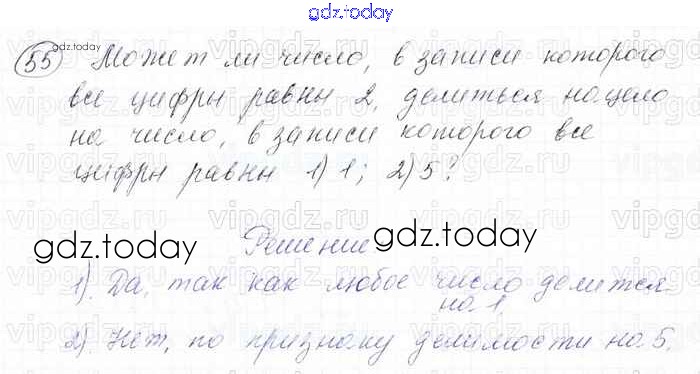 gdz.today
55 gdz.today Может ли число, в записи которого
все цифры равны 2, делиться нацело
на число, в записи которого все
цифры равны 1) 1; 2) 5?
gdz.today Решение gdz.today
1). Да, так как любое число делится
на 1.
2). Нет, по признаку делимости на 5.